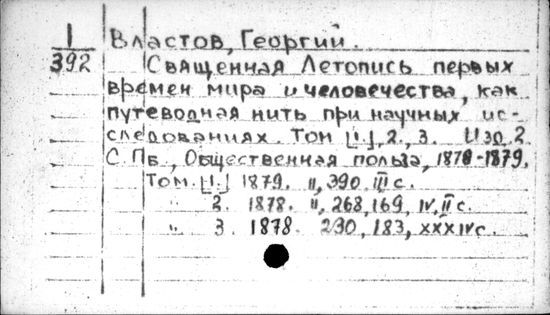 1 Властов, Георгий.
392 Священная Летопись первых
времен мира и человечества, как
путеводная нить при научных ис-
следованиях. Том [1.], 2., 3. Изд. 2
С.Пб., Общественная польза, 1878-1879.
Том. [1.] 1879. II, 390, III с.
" 2. 1878. II, 268, 169, IV, II с.
" 3. 1878. 290, 183, XXXIV с.